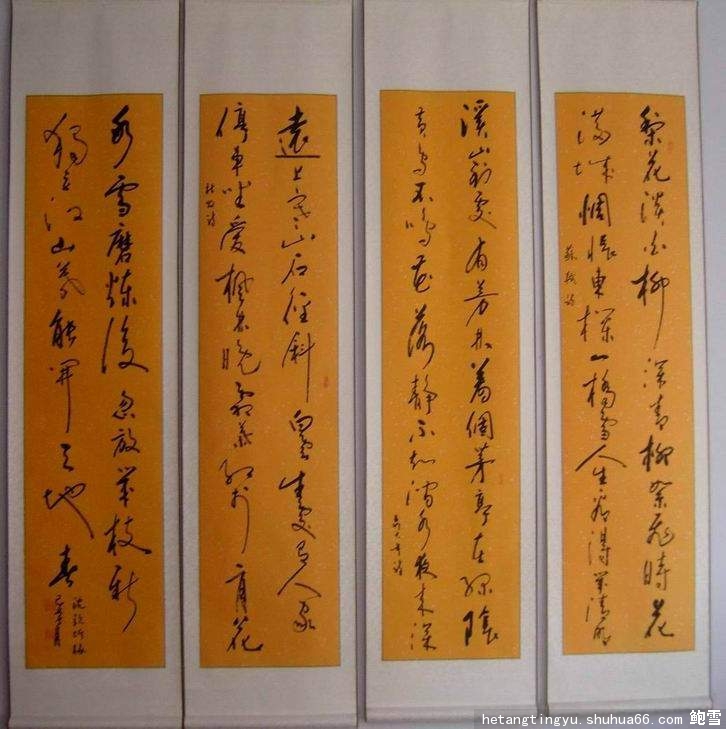 梨花淡白柳深青柳絮飛時花
滿城惆悵東欄一株雪人生看得幾清明
蘇軾詩
溪山處有芳林著個茅亭在綠陰
鳥不鳴花落靜不知水夜來深
遠上寒山石徑斜白雲生處有人家
停車坐愛楓林晚霜葉紅於二月花
杜牧詩
冰雪磨煉後忽放幾枝新
獨立江山暮能開天地春
沈欽圻梅
hetangtingyu.shuhua66.com 鲍雪